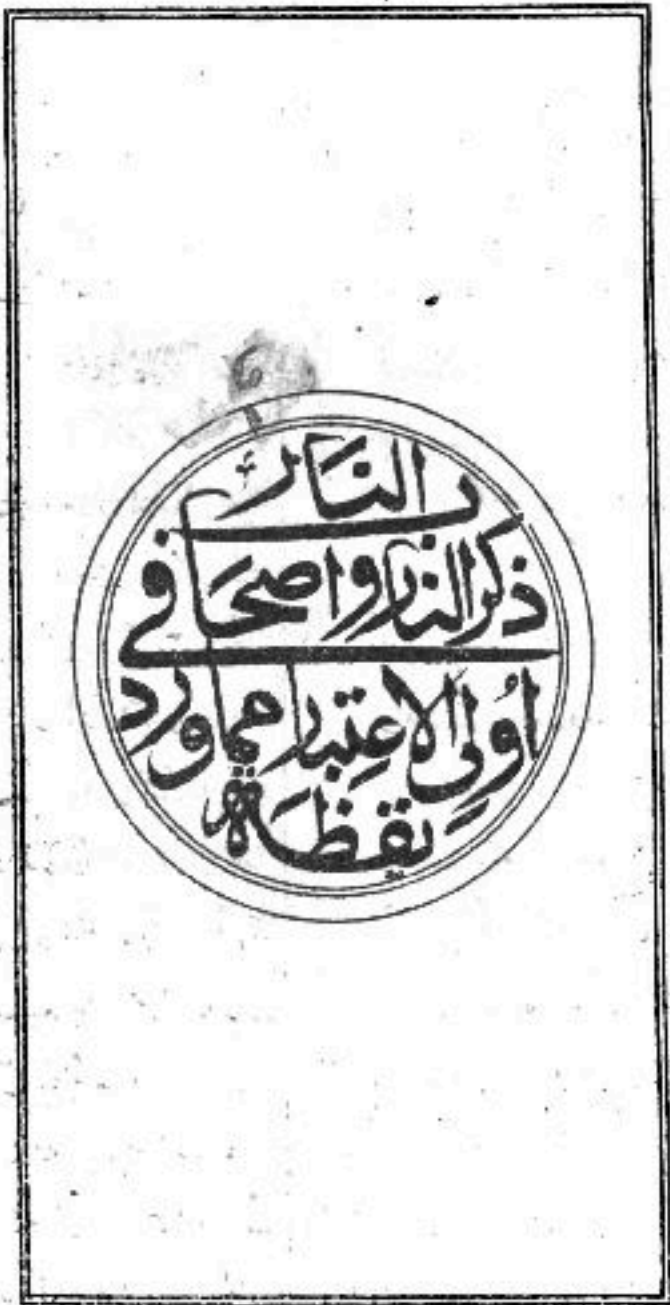 يقظة
اُولِي الاعتبار مما ورد
في ذكر النار واصحا
ب النار